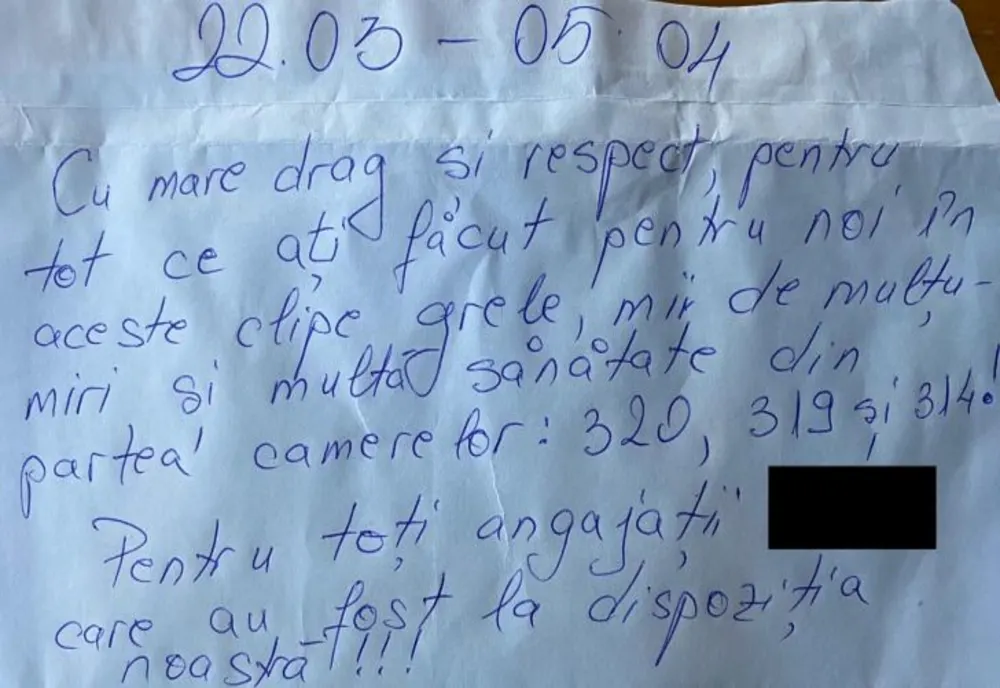 22.03 - 05.04
Cu mare drag și respect, pentru
tot ce ați făcut pentru noi în
aceste clipe grele, mii de mulțu-
miri și multă sănătate din
partea camerelor: 320, 319 și 314!
Pentru toți angajații
care au fost la dispoziția
noastră!!!